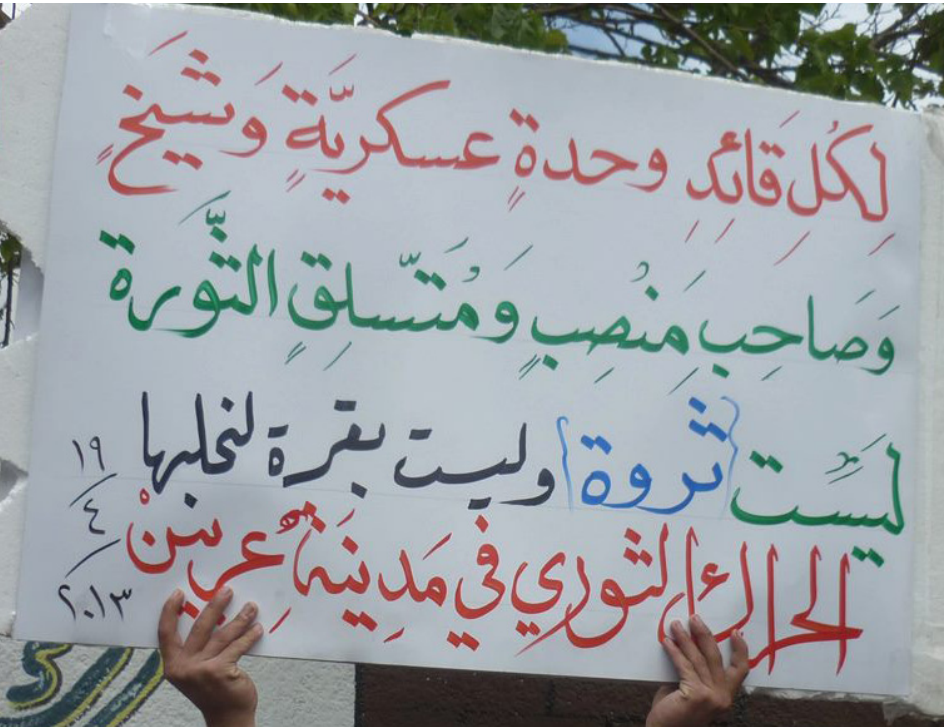 لِكُلِ قَائِدِ وحدةٍ عسكريَّةٍ وَشَيخٍ
وَصَاحِبِ مَنْصِبٍ ومُتَسلِّقٍ الثَّورة
ليسَت (ثروة) وليست بقرة لنحلبها
الحراك الثوري في مَدِينَةِ عربينْ
١٩
٤
٢٠١٣